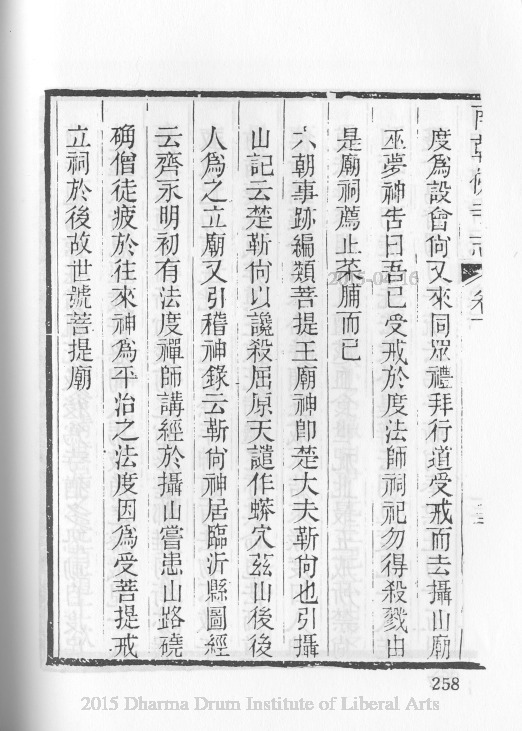 度為設會尙又來同眾禮拜行道受戒而去攝山廟
巫夢神吿曰吾已受戒於度法師祠祀勿得殺戮由
是廟祠薦止茶脯而已
六朝事跡編類菩提王廟神卽楚大夫靳尙也引攝
山記云楚靳尙以讒殺屈原天譴作蟒穴茲山後後
人為之立廟又引稽神錄云靳尙神居臨沂縣圖經
云齊永明初有法度禪師講經於攝山嘗患山路磽
确僧徒疲於往來神為平治之法度因為受菩提戒
立祠於後故世號菩提廟
258
2015 Dharma Drum Institute of Liberal Arts